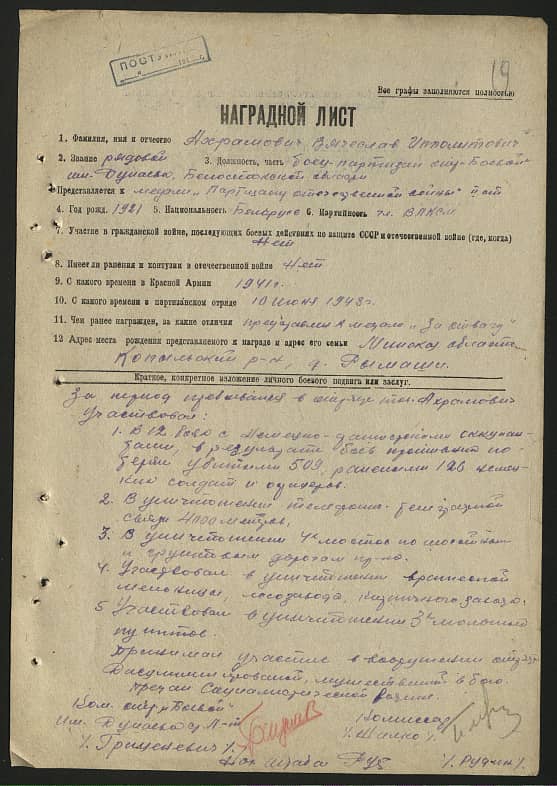 ПОСТУ
19
Все графы заполняются полностью
НАГРАДНОЙ ЛИСТ
1. Фамилия, имя и отчество Ахрамович Вячеслав Ипполитович
2. Звание рядовой 3. Должность, часть боец-партизан отр. Боевой
им. Дунаева, Белостокской области
Представляется к медали "Партизану отечественной войны" II ст.
4. Год рожд. 1921 5. Национальность Белорус 6. Партийность чл. ВЛКСМ
7. Участие в гражданской войне, последующих боевых действиях по защите СССР и отечественной войне (где, когда)
Нет
8. Имеет ли ранения и контузии в отечественной войне Нет
9. С какого времени в Красной Армии 1941г.
10. С какого времени в партизанском отряде 10 июня 1943г.
11. Чем ранее награжден, за какие отличия представлен к медали "За отвагу"
12 Адрес места рождения представляемого к награде и адрес его семьи Минская область
Копыльский р-н, д. Рымаши.
Краткое, конкретное изложение личного боевого подвига или заслуг.
За период пребывания в отряде тов. Ахрамович
участвовал:
1. В 12 боях с немецко- оккупан-
тами, в результате боев противник по-
терял убитыми 509, ранеными 126 немец-
ких солдат и офицеров.
2. В уничтожении телефоно-телеграфной
связи 4000 метров,
3. В уничтожении 4х мостов по шоссейным
и грунтовым дорогам пр-ка.
4. Участвовал в уничтожении вражеской
мельницы, лесозавода, кирпичного завода.
5 Участвовал в уничтожении 3х молочных
пунктов.
Принимал участие в вооружении отряда
Дисциплинированный, мужественный в бою.
Предан Социалистической родине.
Ком. отр. "Боевой" Комиссар
Им. Дунаева
/. Гриценевич /. /. Шалко /.
Нач. штаба /. Рудчик /.